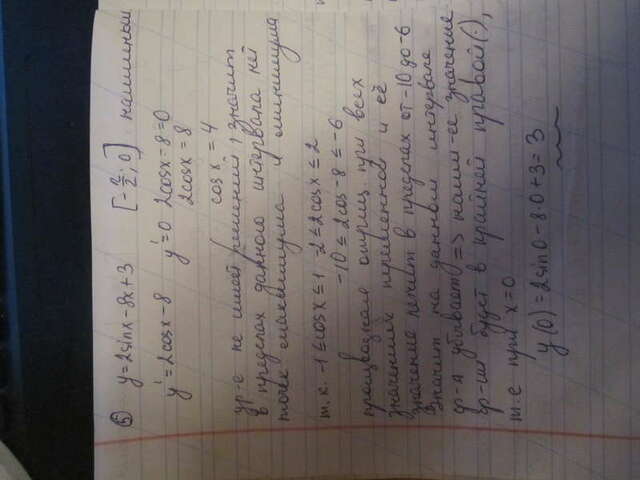 ⑤ y=2sinx-8x+3 [-π/2; 0] наименьш
y'=2cosx-8 y'=0 2cosx-8=0
2cosx=8
cosx=4
ур-е не имеет решений, значит
в пределах данного интервала нет
точек максимума и минимума
т.к. -1≤cosx≤1 -2≤2cosx≤2
-10≤2cos-8≤-6
производная отриц. при всех
значениях переменной и её
значение лежит в пределах от -10 до -6
Значит на данном интервале
ф-я убывает => наим-ее значение
ф-ии будет в крайней правой (·),
т.е при x=0
y(0)=2sin0-8·0+3=3